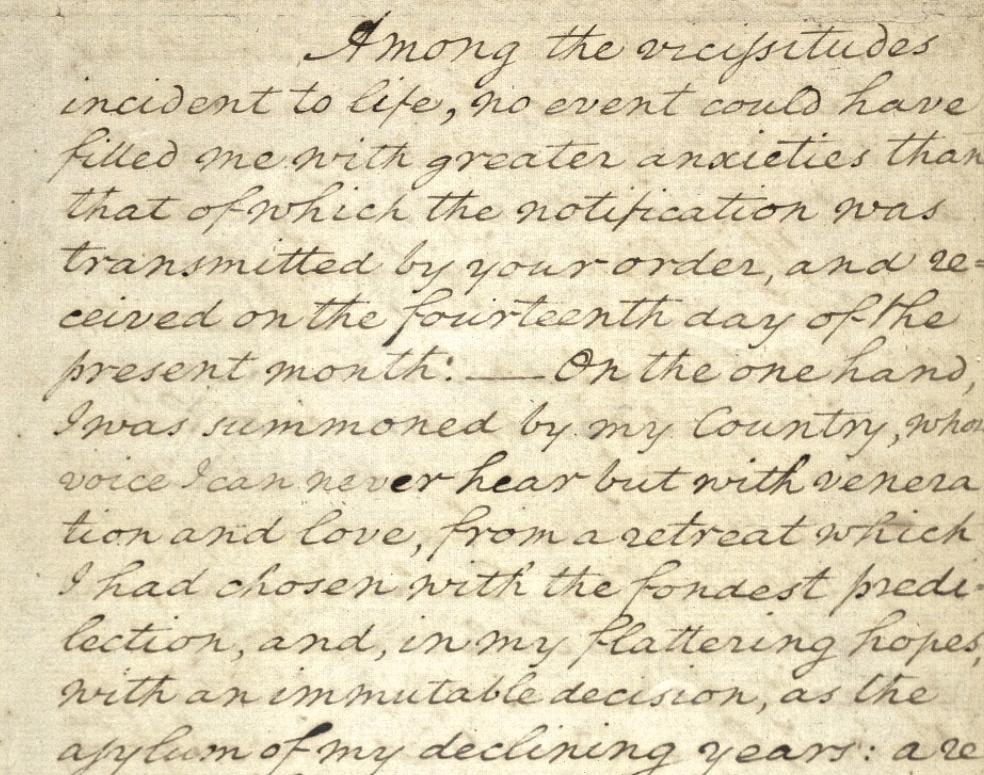 Among the vicissitudes
incident to life, no event could have
filled me with greater anxieties than
that of which the notification was
transmitted by your order, and re=
ceived on the fourteenth day of the
present month:___On the one hand,
I was summoned by my Country, whos
voice I can never hear but with venera
tion and love, from a retreat which
I had chosen with the fondest predi-
lection, and, in my flattering hopes,
with an immutable decision, as the
asylum of my declining years: a re